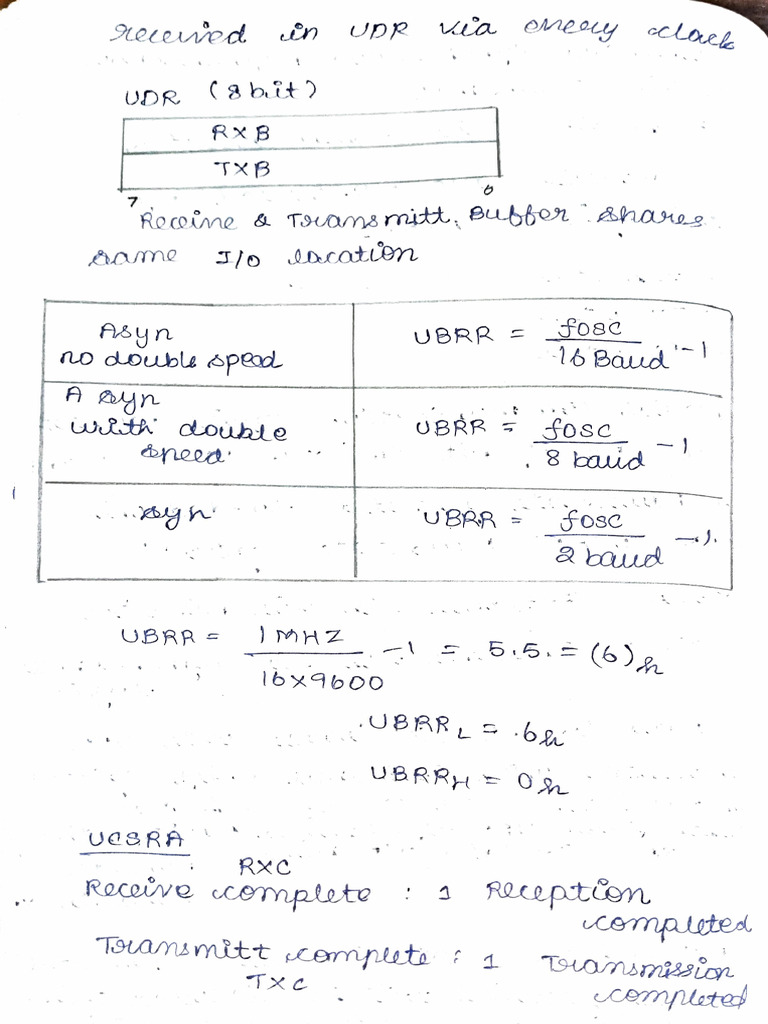 received in UDR via every clock
UDR (8 bit)
RXB
TXB
7 0
Receive & Transmitt Buffer shares
same I/O location
Asyn
no double speed
UBRR = fosc / 16 Baud - 1
Asyn
with double
speed
UBRR = fosc / 8 baud - 1
syn
UBRR = fosc / 2 baud - 1
UBRR = 1 MHZ / 16x9600 - 1 = 5.5 = (6)h
UBRRL = 6h
UBRRH = 0h
UCSRA
RXC
Receive complete : 1 Reception
completed
Transmitt complete : 1 Transmission
TXC completed